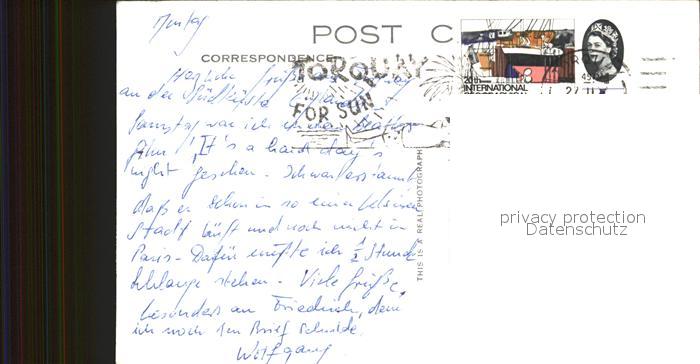 Montag
POST C
CORRESPONDENCE
TORQUAY
FOR SUN
20th
INTERNATIONAL
Herzliche Grüße
an der Südküste Englands.
Samstag war ich in dem Beatles
film "It's a hard day's
night gesehen. Ich war erstaunt
daß er schon in so einer kleinen
Stadt läuft und noch nicht in
Paris - Dafür mußte ich ½ Stunde
Schlange stehen - Viele Grüße,
besonders an Friedrich, dem
ich noch den Brief schulde.
Wolfgang
THIS IS A REAL PHOTOGRAPH
privacy protection
Datenschutz